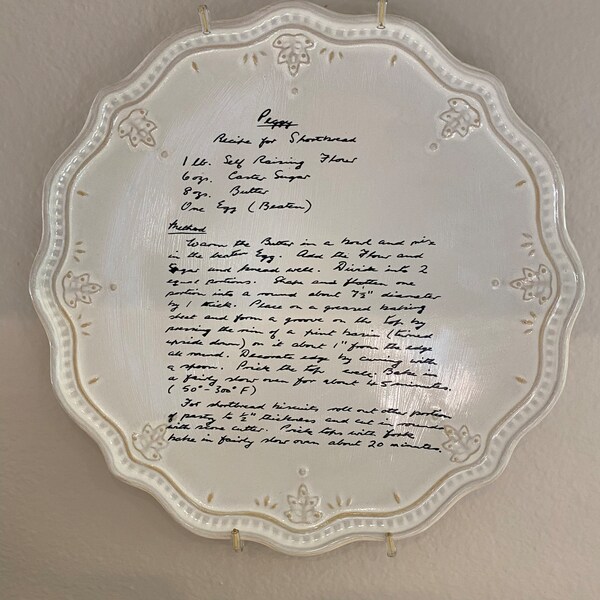 Peggy
Recipe for Shortbread
1 lb. Self Raising Flour
6 ozs. Caster Sugar
8 ozs. Butter
One Egg (Beaten)
Method
Warm the Butter in a bowl and mix
in the beaten Egg. Add the Flour and
Sugar and knead well. Divide into 2
equal portions. Shape and flatten one
portion into a round about 7½" diameter
by 1 thick. Place on a greased baking
sheet and form a groove on the top by
pressing the rim of a pint basin (turned
upside down) on it about 1" from the edge
all round. Decorate edge by with
a spoon. Prick the top well. Bake in
a fairly slow oven for about 45 minutes.
( 50° - 300° F)
For shortbread biscuits roll out other portion
of pastry to ½" thickness and cut in rounds
with cutter. Prick tops with fork
bake in fairly slow oven about 20 minutes.